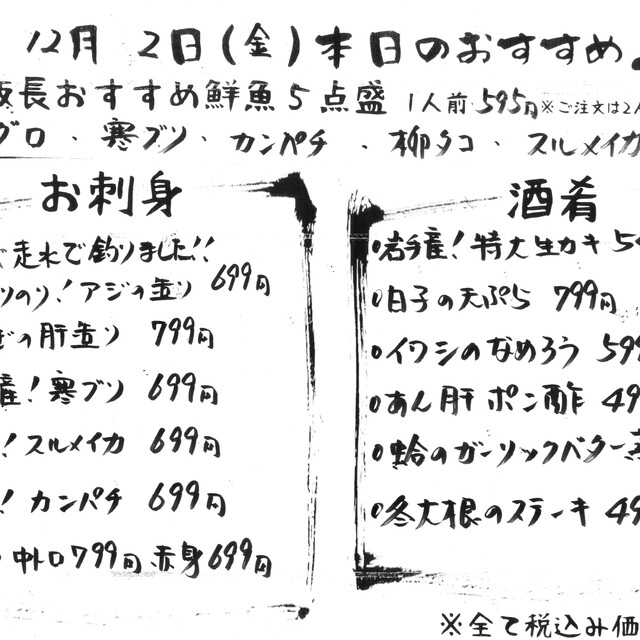 12月 2日(金)本日のおすすめ
長おすすめ鮮魚5点盛 1人前 595円 ※ご注文は2人
グロ・寒ブリ・カンパチ・柳タコ・スルメイカ
お刺身
走水で釣りました!!
ノリのリ!アジの造り 699円
ぎの肝造り 799円
産!寒ブリ 699円
!スルメイカ 699円
!カンパチ 699円
中トロ799円 赤身699円
酒肴
・岩手産!特大生カキ 5
・白子の天ぷら 799円
・イワシのなめろう 599
・あん肝ポン酢 49
・蛤のガーリックバター
・冬大根のステーキ 49
※全て税込み価